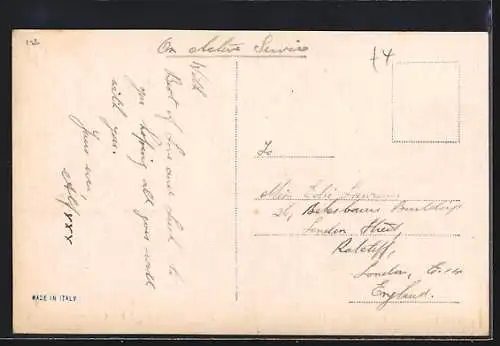 On Active Service
With
Best of Love and Luck to
you hoping all goes well
with you.
Yours ever
Alf xxx
To
Miss
24,
London Street,
Ratcliff,
London, E.14
England.
£4
MADE IN ITALY